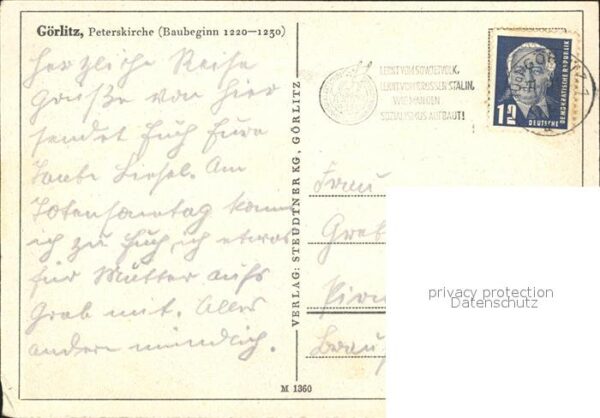 Görlitz, Peterskirche (Baubeginn 1220—1230)
Herzliche Reise
Grüße von hier
sendet Euch Eure
Tante Liesel. Am
Totensonntag komm
ich zu Euch, ich etwas
für Mutter aufs
Grab mit. Alles
andere mündlich.
LERNT VOM SOWJETVOLK,
LERNT VOM GROSSEN STALIN,
WIE MAN DEN
SOZIALISMUS AUFBAUT!
12
DEUTSCHE
DEMOKRATISCHE REPUBLIK
VERLAG: STEUDTNER KG, GÖRLITZ
Frau
M 1360
privacy protection
Datenschutz